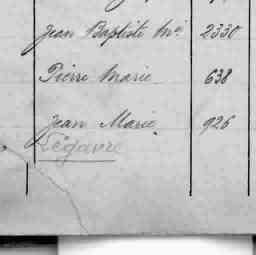 Jean Baptiste Mie 2330
Pierre Marie 638
Jean Marie 926
Légavre